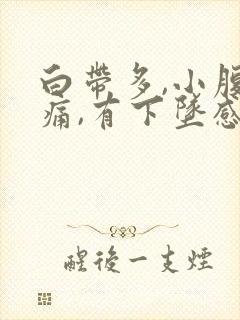 白帶多,小腹
痛,有下墜感
醒後一支煙